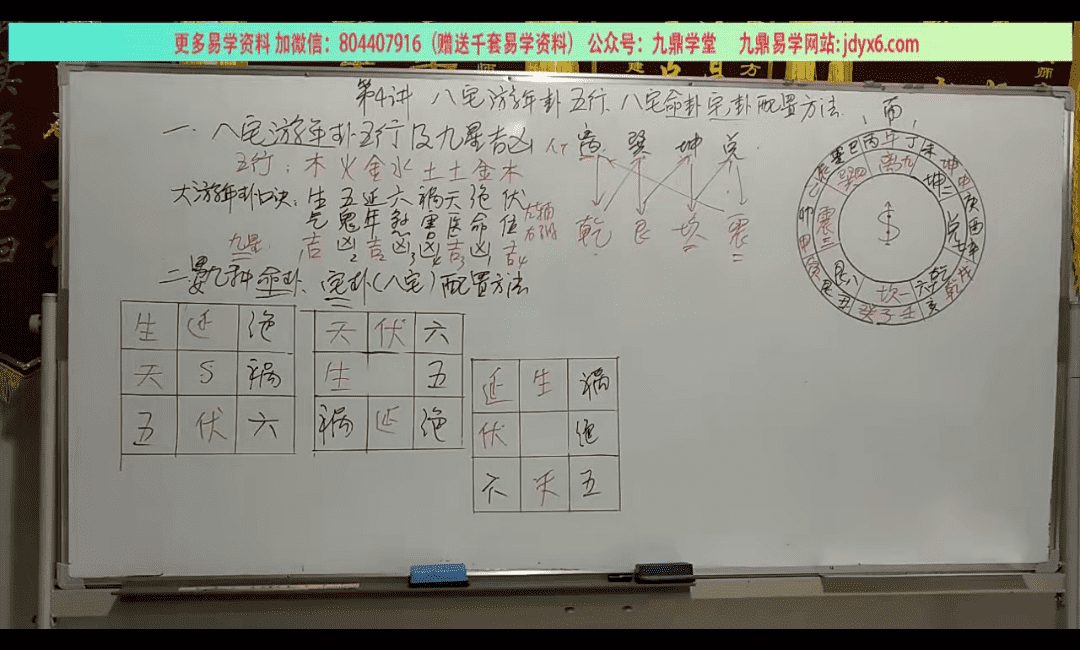 更多易学资料 加微信：804407916（赠送千套易学资料） 公众号：九鼎学堂 九鼎易学网站:jdyx6.com
第4讲 八宅游年卦五行、八宅命卦宅卦配置方法
一、八宅游年卦五行及九星吉凶
五行：木火金水土土金木
大游年卦口诀：生五延六祸天绝伏
气鬼年煞害医命位
九星 吉1 凶2 吉2 凶3 凶4 吉3 凶1 吉4
离 巽 坤 兑
乾 艮 坎 震
二 命卦、宅卦（八宅）配置方法
生 延 绝
天 5 祸
五 伏 六
天 伏 六
生 五
祸 延 绝
延 生 祸
伏 绝
六 天 五
南
巽巳丙午丁未坤申庚酉辛戌乾亥壬子癸丑艮
离九
坤二
兑七
乾六
坎一
艮八
震三
巽四